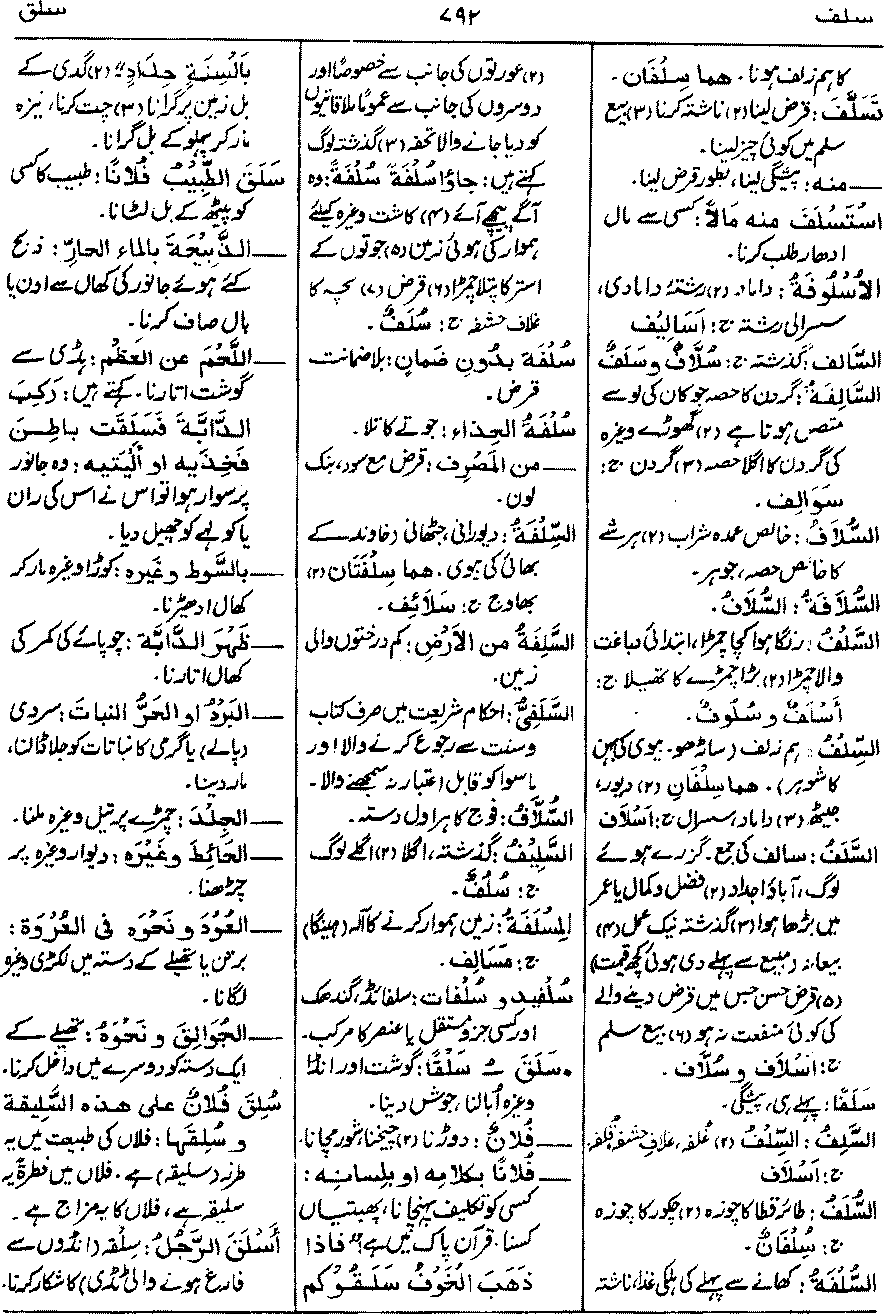 سلف
۷۹۲
سلق
کا ہم زلف ہونا۔ هما سِلْفَان۔
تَسَلَّفَ: قرض لینا (۲) ناشتہ کرنا (۳) بیع
سلم میں کوئی چیز لینا۔
— منه: پیشگی لینا، بطور قرض لینا۔
اسْتَسْلَفَ منه مَالاً: کسی سے مال
ادھار طلب کرنا۔
الأُسْلُوفَةُ: داماد (۲) رشتۂ دامادی،
سسرالی رشتہ ج: أَسَالِيف
السَّالِف: گذشتہ ج: سُلَّافٌ و سَلَفٌ
السَّالِفَةُ: گردن کا حصہ جو کان کی لو سے
متصل ہوتا ہے (۲) گھوڑے وغیرہ
کی گردن کا اگلا حصہ (۳) گردن ج:
سَوَالِف۔
السُّلَافُ: خالص عمدہ شراب (۲) ہر شے
کا خالص حصہ، جوہر۔
السُّلَافَةُ: السُّلَافُ۔
السَّلْفُ: رنگا ہوا کچا چمڑا، ابتدائی دباغت
والا چمڑا (۲) بڑا چمڑے کا تھیلا ج:
أَسْلُفٌ و سُلُوفٌ۔
السِّلْفُ: ہم زلف (ساڑھو۔ بیوی کی بہن
کا شوہر)۔ هما سِلْفَانِ (۲) دیور،
جیٹھ (۳) داماد، سسرال ج: أَسْلَاف
السَّلَفُ: سالف کی جمع۔ گزرے ہوئے
لوگ، آباؤ اجداد (۲) فضل و کمال یا عمر
میں بڑھا ہوا (۳) گذشتہ نیک عمل (۴)
بیعانہ (مبیع سے پہلے دی ہوئی کچھ قیمت)
(۵) قرض حسن جس میں قرض دینے والے
کی کوئی منفعت نہ ہو (۶) بیع سلم
ج: أَسْلَاف و سُلَّاف۔
سَلَفًا: پہلے ہی، پیشگی۔
السَّلِفُ: السِّلْفُ (۲) غُلفہ، غلاف حشفہ، قلفہ
ج: أَسْلَاف
السُّلَفُ: طائر قطا کا چوزہ (۲) چکور کا چوزہ
ج: سُلْفَانٌ۔
السُّلْفَةُ: کھانے سے پہلے کی ہلکی غذا، ناشتہ
(۲) عورتوں کی جانب سے خصوصًا اور
دوسروں کی جانب سے عمومًا ملاقاتیوں
کو دیا جانے والا تحفہ (۳) گذشتہ لوگ
کہتے ہیں: جاؤا سُلْفَةً سُلْفَةً: وہ
آگے پیچھے آئے (۴) کاشت وغیرہ کیلئے
ہموار کی ہوئی زمین (۵) جوتوں کے
استر کا پتلا چمڑا (۶) قرض (۷) بچہ کا
غلاف حشفہ ج: سُلَفٌ۔
سُلْفَة بدُونِ ضَمانٍ: بلا ضمانت
قرض۔
سُلْفَةُ الحِذاء: جوتے کا تلا۔
— من المَصْرِف: قرض مع سود، بنک
لون۔
السِّلْفَةُ: دیورانی، جٹھانی (خاوند کے
بھائی کی بیوی۔ هما سِلْفَتَان (۲)
بھاوج ج: سَلَائِف۔
السَّلِفَةُ من الأَرْضِ: کم درختوں والی
زمین۔
السَّلَفِيُّ: احکام شریعت میں صرف کتاب
و سنت سے رجوع کرنے والا اور
ماسوا کو قابل اعتبار نہ سمجھنے والا۔
السُّلَّافُ: فوج کا ہراول دستہ۔
السَّلِيْفُ: گذشتہ، اگلا (۲) اگلے لوگ
ج: سُلُفٌ۔
المِسْلَفَةُ: زمین ہموار کرنے کا آلہ (ہینگا)
ج: مَسَالِف۔
سُلْفِيد و سُلْفات: سلفائڈ، گندھک
اور کسی جزو مستقل یا عنصر کا مرکب۔
• سَلَقَ ـُ سَلْقًا: گوشت اور انڈا
وغیرہ اُبالنا، جوش دینا۔
— فُلانٌ: دوڑنا (۲) چیخنا، شور مچانا۔
— فُلانًا بكلامِه او بلسانِه:
کسی کو تکلیف پہنچانا، پھبتیاں
کسنا۔ قرآن پاک میں ہے "فَاذا
ذَهَبَ الخَوْفُ سَلَقُوكم
بأَلْسِنَةٍ حِدَادٍ" (۲) گدی کے
بل زمین پر گرانا (۳) چت کرنا، نیزہ
مار کر پہلو کے بل گرانا۔
سَلَقَ الطَّبِيْبُ فُلانًا: طبیب کا کسی
کو پیٹھ کے بل لٹانا۔
— الذَّبِيْحَةَ بالماء الحارّ: ذبح
کئے ہوئے جانور کی کھال سے اون یا
بال صاف کرنا۔
— اللَّحْمَ عن العَظْمِ: ہڈی سے
گوشت اتارنا۔ کہتے ہیں: رَكِبَ
الدَّابَّةَ فَسَلَقَت باطِنَ
فَخِذَيه او أَلْيَتَيه: وہ جانور
پر سوار ہوا تو اس نے اس کی ران
یا کولہے کو چھیل دیا۔
— بالسَّوط وغَيره: کوڑا وغیرہ مار کر
کھال ادھیڑنا۔
— ظَهْرَ الدَّابَّة: چوپائے کی کمر کی
کھال اتارنا۔
— البَرْدُ او الحَرُّ النباتَ: سردی
(پالے) یا گرمی کا نباتات کو جلا ڈالنا،
مار دینا۔
— الجِلْدَ: چمڑے پر تیل وغیرہ ملنا۔
— الحَائطَ وغَيْرَه: دیوار وغیرہ پر
چڑھنا۔
— العُوْدَ و نَحْوَه فى العُرْوَة:
برتن یا تھیلے کے دستہ میں لکڑی وغیرہ
لگانا۔
— الجُوَالِقَ و نَحْوَه: تھیلے کے
ایک دستہ کو دوسرے میں داخل کرنا۔
سُلِقَ فُلانٌ على هذه السَّلِيقة
و سُلِقَها: فلاں کی طبیعت میں یہ
طرز (سلیقہ) ہے۔ فلاں میں فطرةً یہ
سلیقہ ہے، فلاں کا یہ مزاج ہے۔
أَسْلَقَ الرَّجُلُ: سِلْقہ (انڈوں سے
فارغ ہونے والی ٹڈی) کا شکار کرنا۔